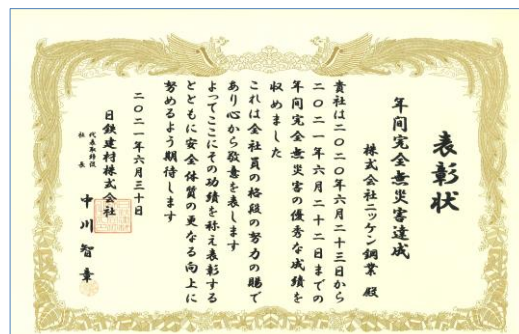 表彰状
年间完全無災害達成
株式会社ニッケン鋼業 殿
貴社は二〇二〇年六月二十三日から
二〇二一年六月二十二日までの
年間完全無災害の優秀な成績を
収めました
これは全社員の格段の努力の賜で
あり心から敬意を表します
よってここにその功績を称え表彰する
とともに安全体質の更なる向上に
努めるよう期待します
二〇二一年六月三十日
日鉄建材株式会社
代表取締役
社長
中川智章